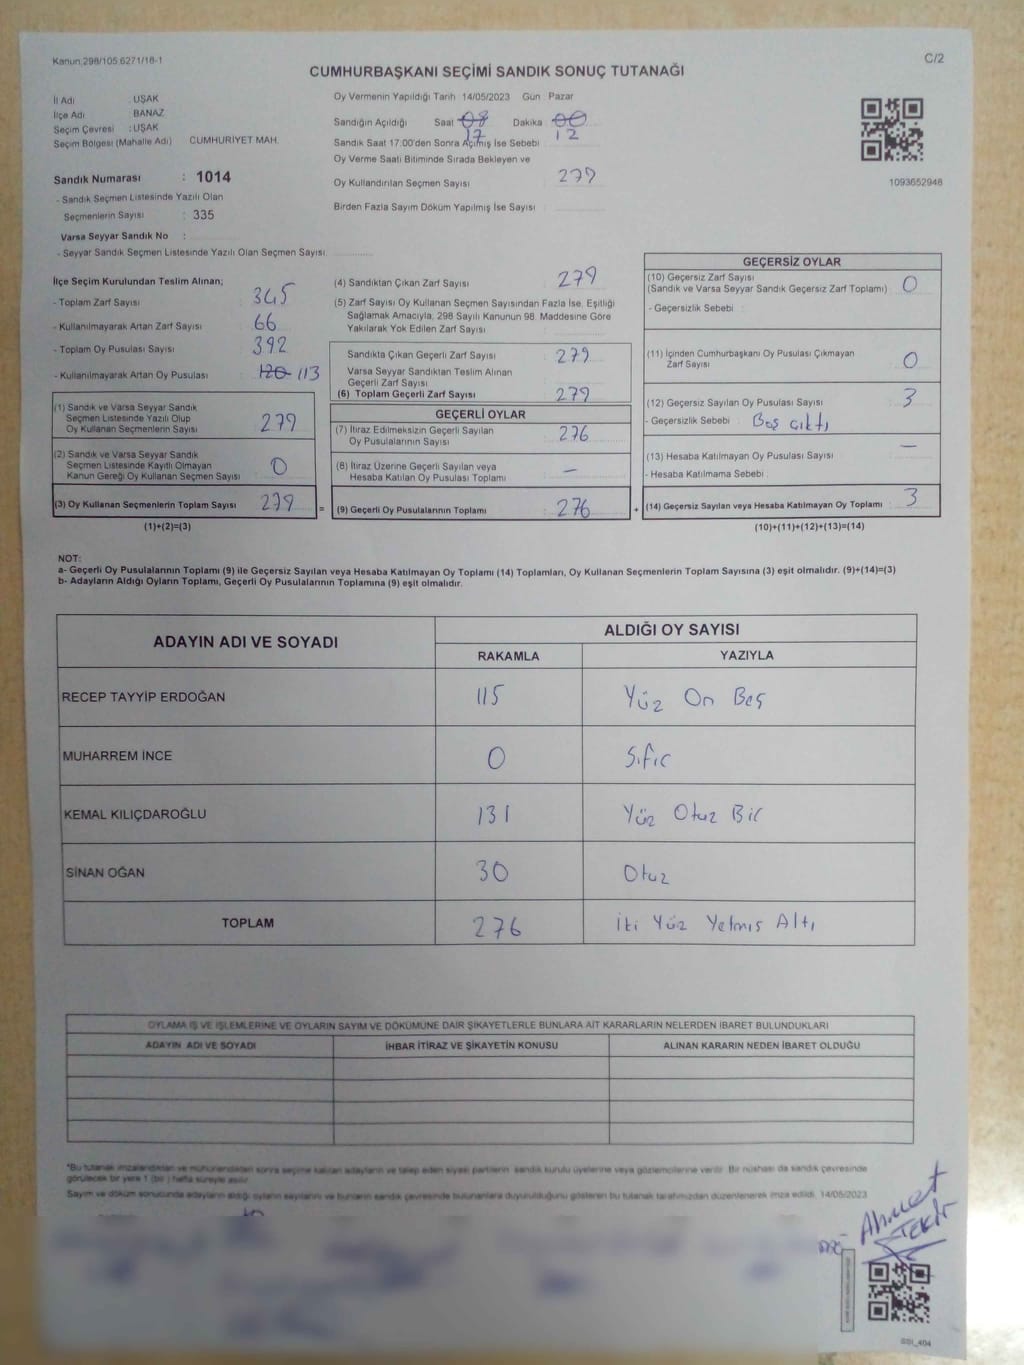 Kanun;298/105,6271/18-1
C/2
CUMHURBAŞKANI SEÇİMİ SANDIK SONUÇ TUTANAĞI
İl Adı : UŞAK
İlçe Adı : BANAZ
Seçim Çevresi : UŞAK
Seçim Bölgesi (Mahalle Adı) CUMHURİYET MAH.
Sandık Numarası : 1014
- Sandık Seçmen Listesinde Yazılı Olan
Seçmenlerin Sayısı : 335
Varsa Seyyar Sandık No :
- Seyyar Sandık Seçmen Listesinde Yazılı Olan Seçmen Sayısı
Oy Vermenin Yapıldığı Tarih 14/05/2023 Gün : Pazar
Sandığın Açıldığı Saat 08 17 Dakika 00 12
Sandık Saat 17.00'den Sonra Açılmış İse Sebebi
Oy Verme Saati Bitiminde Sırada Bekleyen ve
Oy Kullandırılan Seçmen Sayısı 279
Birden Fazla Sayım Döküm Yapılmış İse Sayısı
1093652948
İlçe Seçim Kurulundan Teslim Alınan;
- Toplam Zarf Sayısı 345
- Kullanılmayarak Artan Zarf Sayısı 66
- Toplam Oy Pusulası Sayısı 392
- Kullanılmayarak Artan Oy Pusulası 120 113
(1) Sandık ve Varsa Seyyar Sandık
Seçmen Listesinde Yazılı Olup
Oy Kullanan Seçmenlerin Sayısı 279
(2) Sandık ve Varsa Seyyar Sandık
Seçmen Listesinde Kayıtlı Olmayan
Kanun Gereği Oy Kullanan Seçmen Sayısı 0
(3) Oy Kullanan Seçmenlerin Toplam Sayısı 279 =
(1)+(2)=(3)
(4) Sandıktan Çıkan Zarf Sayısı 279
(5) Zarf Sayısı Oy Kullanan Seçmen Sayısından Fazla İse, Eşitliği
Sağlamak Amacıyla, 298 Sayılı Kanunun 98. Maddesine Göre
Yakılarak Yok Edilen Zarf Sayısı
Sandıkta Çıkan Geçerli Zarf Sayısı 279
Varsa Seyyar Sandıktan Teslim Alınan
Geçerli Zarf Sayısı
(6) Toplam Geçerli Zarf Sayısı 279
GEÇERLİ OYLAR
(7) İtiraz Edilmeksizin Geçerli Sayılan
Oy Pusulalarının Sayısı 276
(8) İtiraz Üzerine Geçerli Sayılan veya
Hesaba Katılan Oy Pusulası Toplamı –
(9) Geçerli Oy Pusulalarının Toplamı 276 +
GEÇERSİZ OYLAR
(10) Geçersiz Zarf Sayısı
(Sandık ve Varsa Seyyar Sandık Geçersiz Zarf Toplamı) 0
- Geçersizlik Sebebi :
(11) İçinden Cumhurbaşkanı Oy Pusulası Çıkmayan
Zarf Sayısı 0
(12) Geçersiz Sayılan Oy Pusulası Sayısı 3
- Geçersizlik Sebebi : Boş çıktı
(13) Hesaba Katılmayan Oy Pusulası Sayısı –
- Hesaba Katılmama Sebebi :
(14) Geçersiz Sayılan veya Hesaba Katılmayan Oy Toplamı 3
(10)+(11)+(12)+(13)=(14)
NOT:
a- Geçerli Oy Pusulalarının Toplamı (9) ile Geçersiz Sayılan veya Hesaba Katılmayan Oy Toplamı (14) Toplamları, Oy Kullanan Seçmenlerin Toplam Sayısına (3) eşit olmalıdır. (9)+(14)=(3)
b- Adayların Aldığı Oyların Toplamı, Geçerli Oy Pusulalarının Toplamına (9) eşit olmalıdır.
ADAYIN ADI VE SOYADI
ALDIĞI OY SAYISI
RAKAMLA YAZIYLA
RECEP TAYYİP ERDOĞAN 115 Yüz On Beş
MUHARREM İNCE 0 Sıfır
KEMAL KILIÇDAROĞLU 131 Yüz Otuz Bir
SİNAN OĞAN 30 Otuz
TOPLAM 276 İki Yüz Yetmiş Altı
OYLAMA İŞ VE İŞLEMLERİNE VE OYLARIN SAYIM VE DÖKÜMÜNE DAİR ŞİKAYETLERLE BUNLARA AİT KARARLARIN NELERDEN İBARET BULUNDUKLARI
ADAYIN ADI VE SOYADI İHBAR İTİRAZ VE ŞİKAYETİN KONUSU ALINAN KARARIN NEDEN İBARET OLDUĞU
*Bu tutanak imzalandıktan ve mühürlendikten sonra seçime katılan adayların ve talep eden siyasi partilerin sandık kurulu üyelerine veya gözlemcilerine verilir. Bir nüshası da sandık çevresinde
görülecek bir yere 1 (bir) hafta süreyle asılır.
Sayım ve döküm sonucunda adayların aldığı oyların sayılarını ve bunların sandık çevresinde bulunanlara duyurulduğunu gösteren bu tutanak tarafımızdan düzenlenerek imza edildi. 14/05/2023
Ahmet
TEKİR
SSI_404